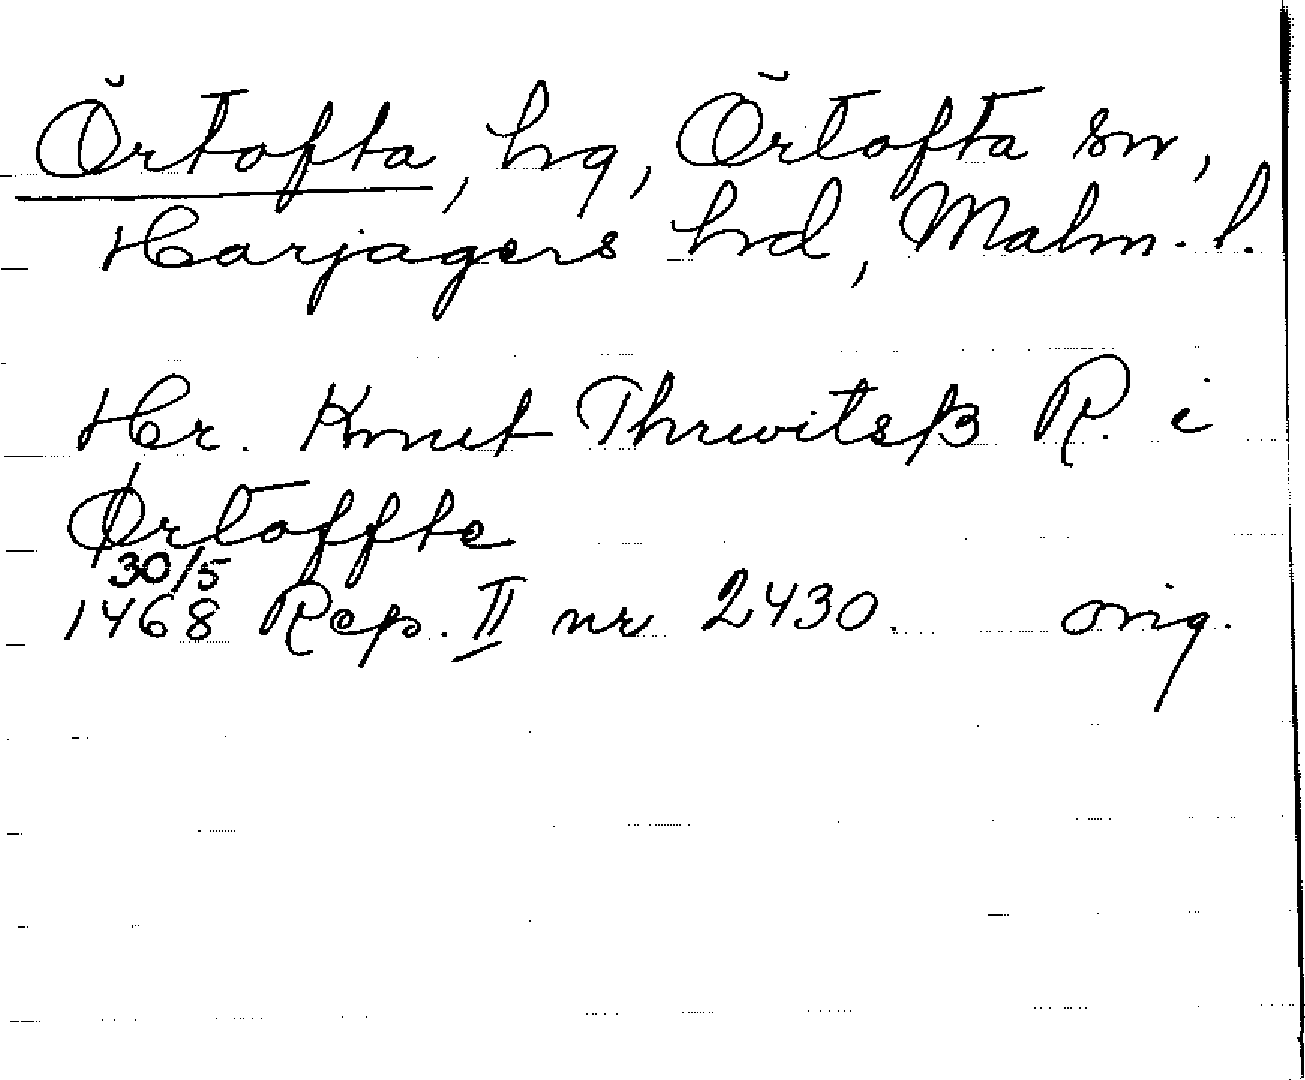 Örtofta, hg, Örtofta sn,
Harjagers hd, Malm. l.
Hr. Knut Thrwitsβ R. i
Ørtoffte
30/5
1468 Rep. II nr 2430. orig.